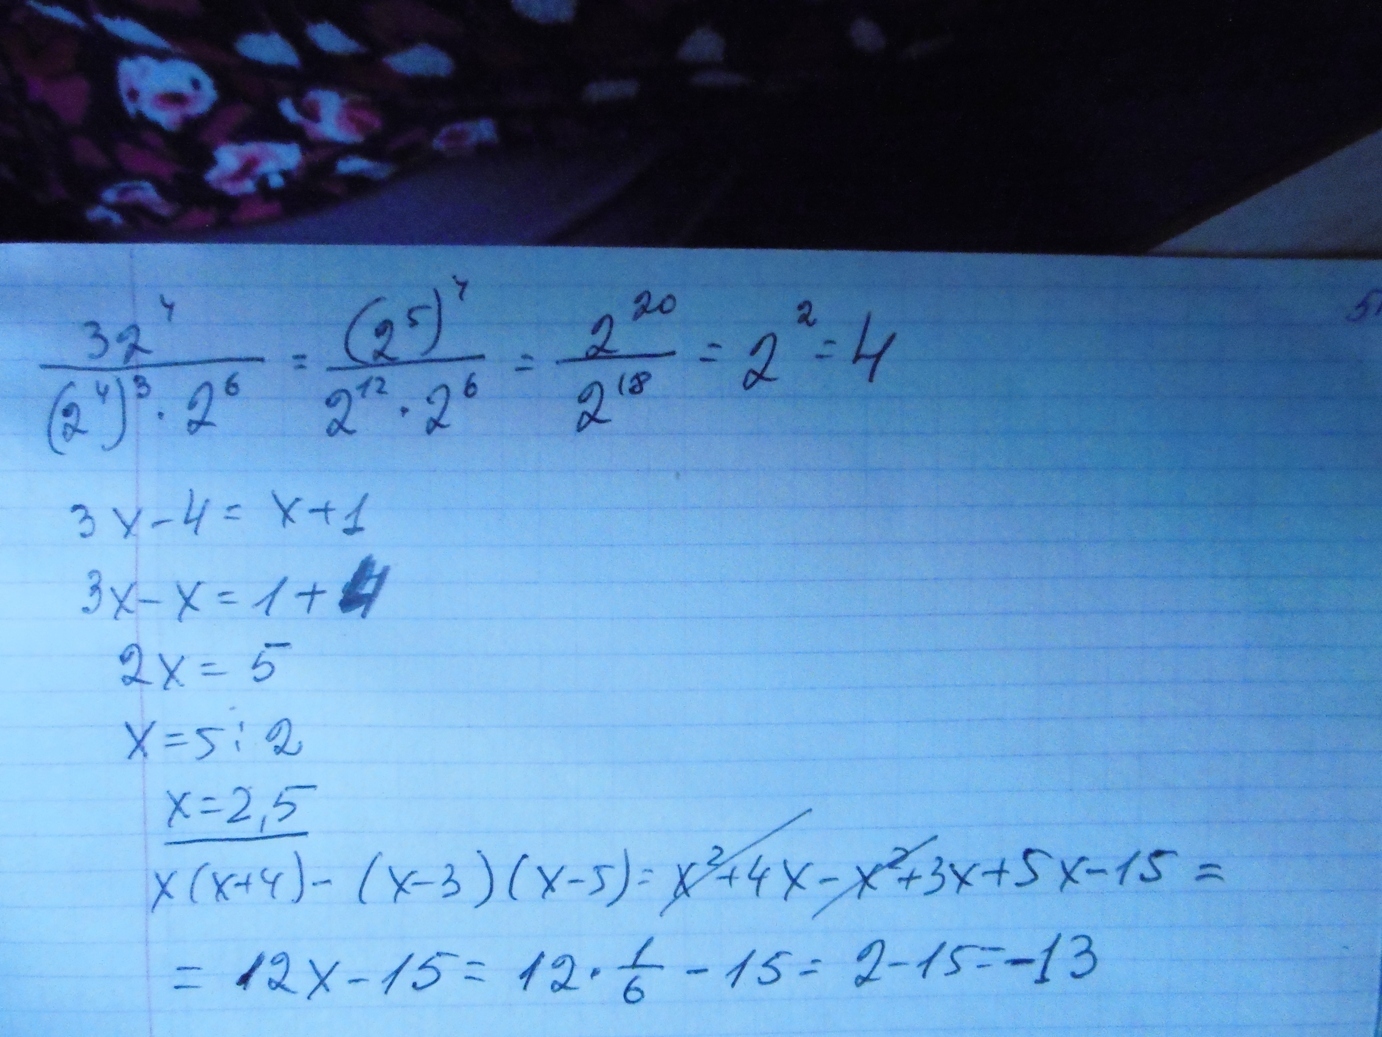 32⁴/((2⁴)³·2⁶) = (2⁵)⁴/(2¹²·2⁶) = 2²⁰/2¹⁸ = 2² = 4
3x-4= x+1
3x-x=1+4
2x= 5
x=5:2
x=2,5
x(x+4)-(x-3)(x-5)= x²+4x-x²+3x+5x-15=
= 12x-15= 12·1/6-15= 2-15=-13